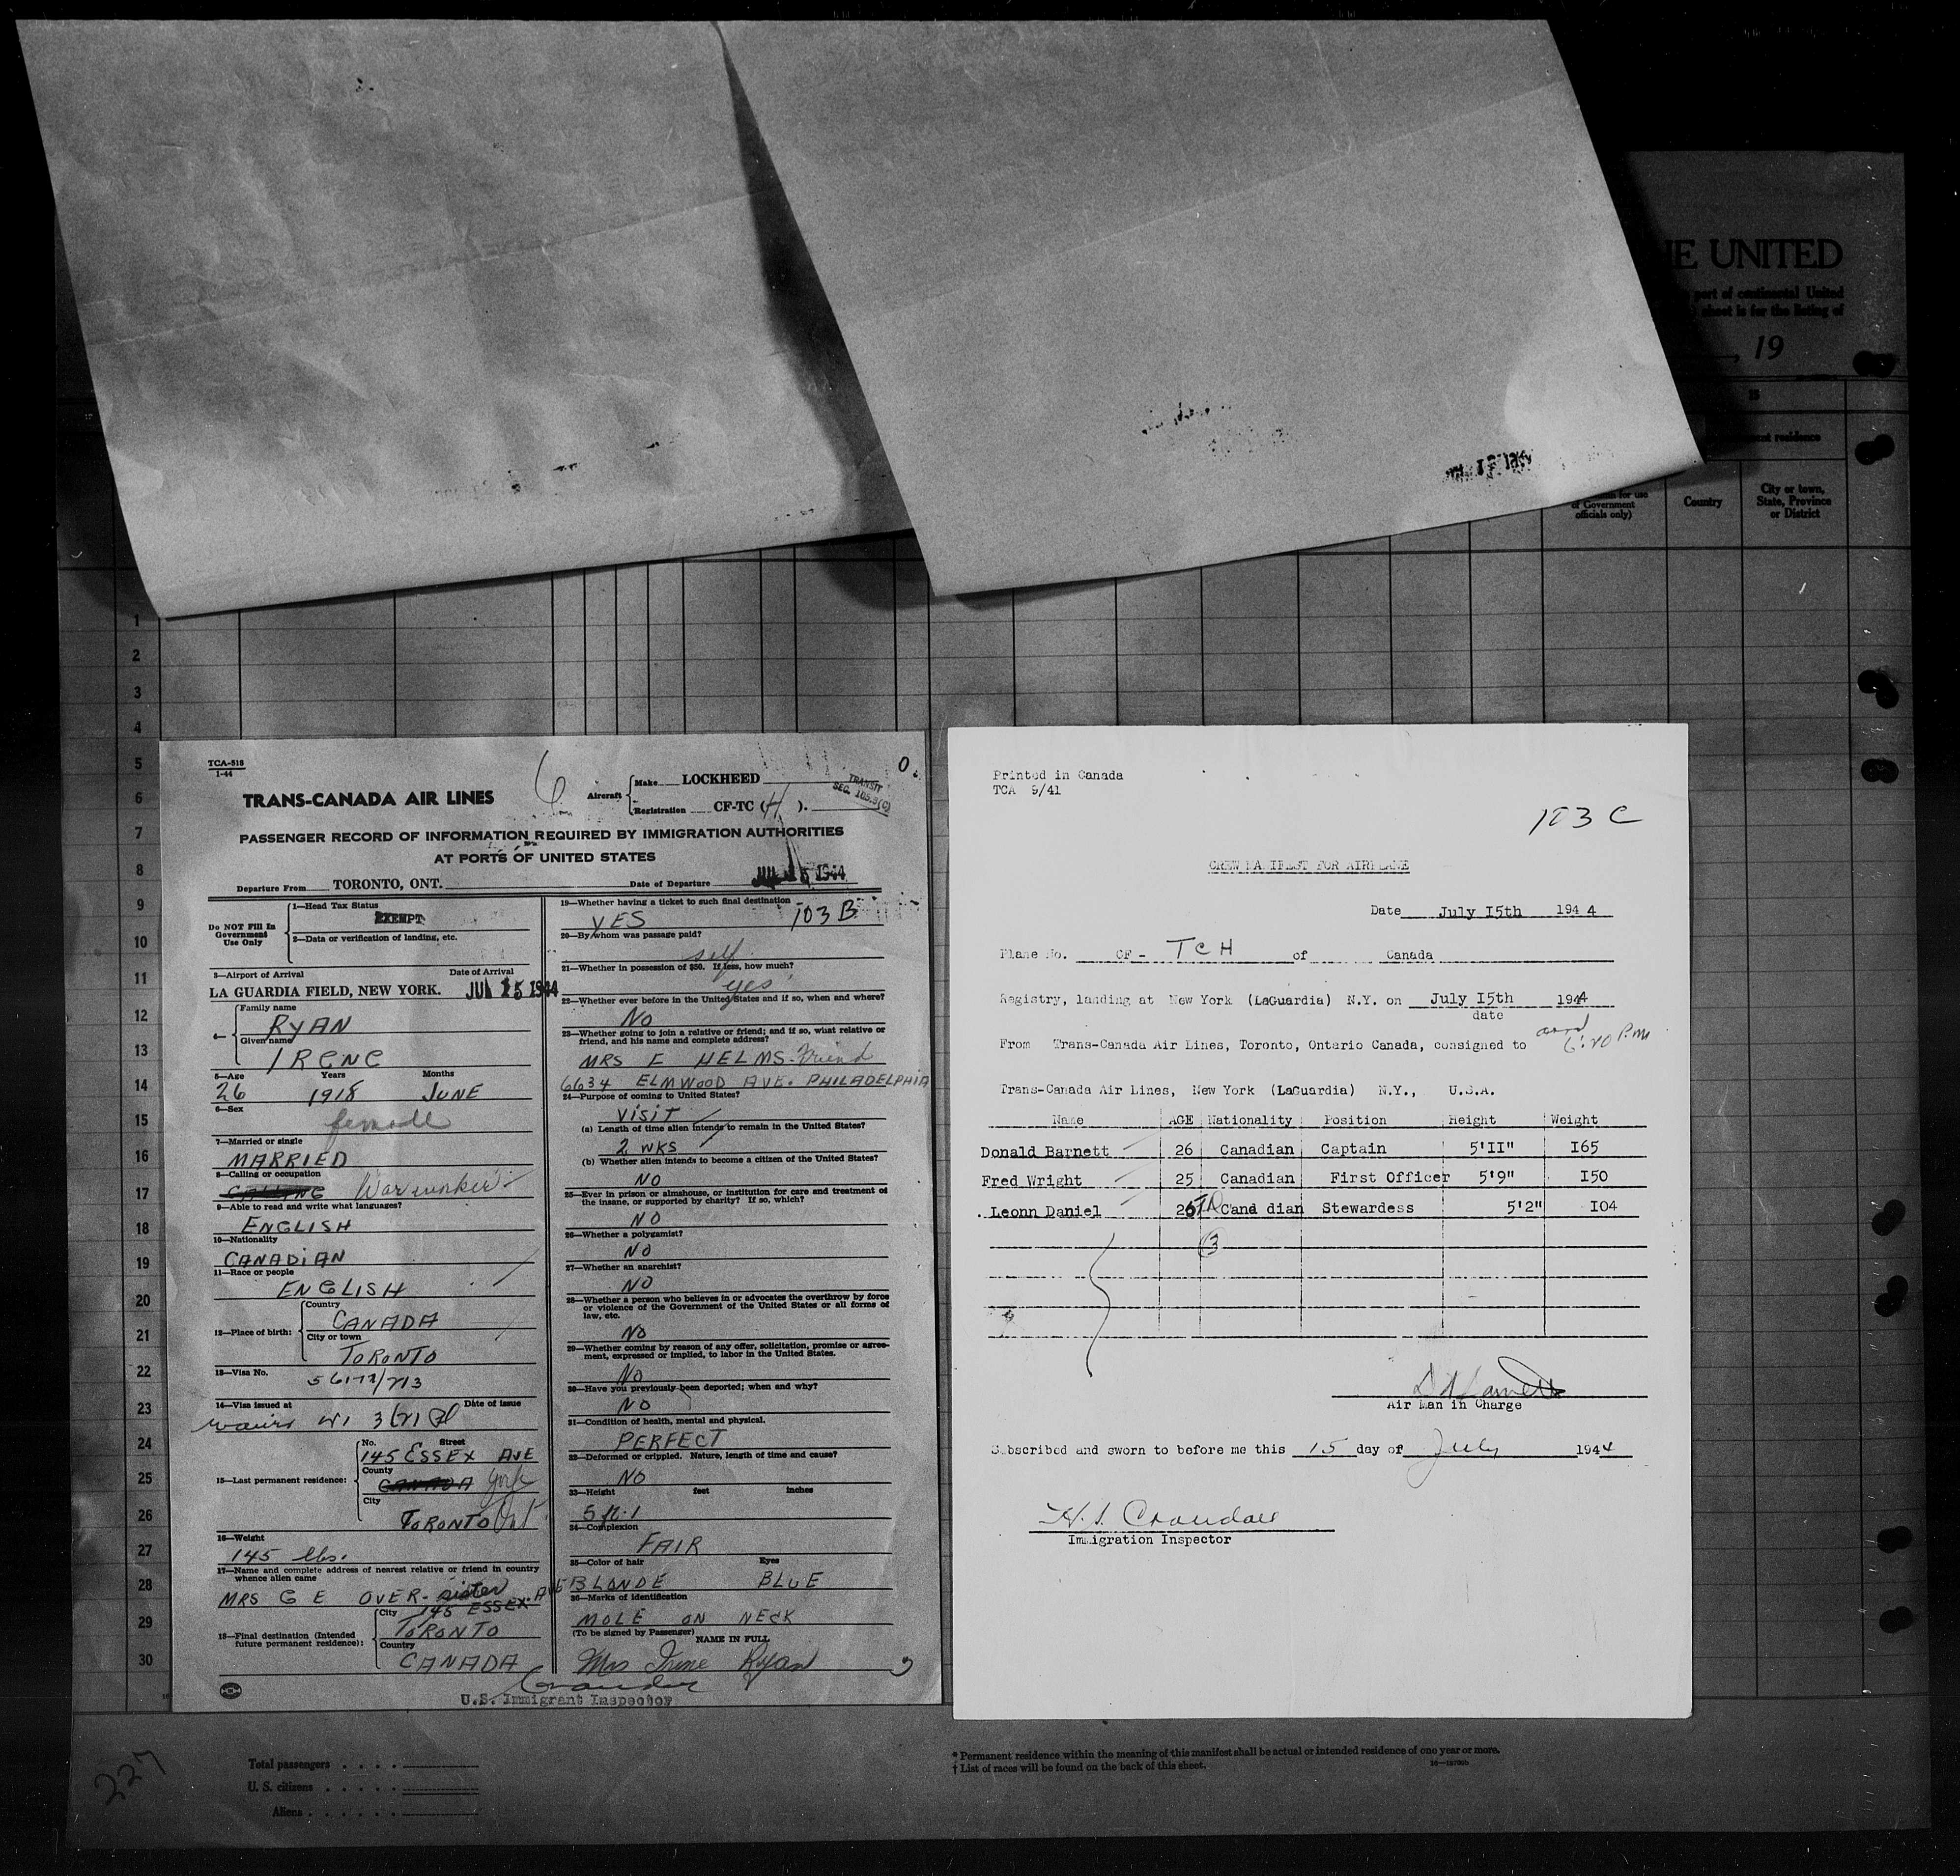 E UNITED
port of continental United
sheet is for the listing of
, 19
15
residence
for use
of Government
officials only)
Country
City or town,
State, Province
or District
1
2
3
4
5
6
7
8
9
10
11
12
13
14
15
16
17
18
19
20
21
22
23
24
25
26
27
28
29
30
TCA-518
1-44
6
0
Aircraft
Make LOCKHEED
Registration CF-TC (H).
TRANSIT
SEC. 105.3(C)
TRANS-CANADA AIR LINES
PASSENGER RECORD OF INFORMATION REQUIRED BY IMMIGRATION AUTHORITIES
AT PORTS OF UNITED STATES
Departure From TORONTO, ONT. Date of Departure JUL 15 1944
Do NOT Fill In
Government
Use Only
1—Head Tax Status
EXEMPT
2—Data or verification of landing, etc.
3—Airport of Arrival Date of Arrival
LA GUARDIA FIELD, NEW YORK. JUL 15 1944
4— Family name
RYAN
Given name
IRENE
5—Age Years Months
26 1918 JUNE
6—Sex
female
7—Married or single
MARRIED
8—Calling or occupation
War worker
9—Able to read and write what languages?
ENGLISH
10—Nationality
CANADIAN
11—Race or people
ENGLISH
12—Place of birth:
Country
CANADA
City or town
TORONTO
13—Visa No.
14—Visa issued at Date of issue
15—Last permanent residence:
No. Street
145 ESSEX AVE
County
CANADA York
City
TORONTO Ont
16—Weight
145 lbs.
17—Name and complete address of nearest relative or friend in country
whence alien came
MRS G E OVER - sister
145 ESSEX AVE
18—Final destination (Intended
future permanent residence):
City
TORONTO
Country
CANADA
19—Whether having a ticket to such final destination
YES 103 B
20—By whom was passage paid?
self
21—Whether in possession of $50. If less, how much?
yes
22—Whether ever before in the United States and if so, when and where?
NO
23—Whether going to join a relative or friend; and if so, what relative or
friend, and his name and complete address?
MRS F HELMS - friend
6634 ELMWOOD AVE. PHILADELPHIA
24—Purpose of coming to United States?
VISIT
(a) Length of time alien intends to remain in the United States?
2 WKS
(b) Whether alien intends to become a citizen of the United States?
NO
25—Ever in prison or almshouse, or institution for care and treatment of
the insane, or supported by charity? If so, which?
NO
26—Whether a polygamist?
NO
27—Whether an anarchist?
NO
28—Whether a person who believes in or advocates the overthrow by force
or violence of the Government of the United States or all forms of
law, etc.
NO
29—Whether coming by reason of any offer, solicitation, promise or agree-
ment, expressed or implied, to labor in the United States.
NO
30—Have you previously been deported; when and why?
NO
31—Condition of health, mental and physical.
PERFECT
32—Deformed or crippled. Nature, length of time and cause?
NO
33—Height feet inches
5 ft. 1
34—Complexion
FAIR
35—Color of hair Eyes
BLONDE BLUE
36—Marks of identification
MOLE ON NECK
(To be signed by Passenger) NAME IN FULL
Mrs Irene Ryan
Crandall
U.S. Immigrant Inspector
Printed in Canada
TCA 9/41
103 C
CREW MA IFEST FOR AIRPLANE
Date July I5th 1944
Plane No. CF - TCH of Canada
Registry, landing at New York (LaGuardia) N.Y. on July I5th 1944
date
From Trans-Canada Air Lines, Toronto, Ontario Canada, consigned to
6:20 P.M.
Trans-Canada Air Lines, New York (LaGuardia) N.Y., U.S.A.
Name AGE Nationality Position Height Weight
Donald Barnett 26 Canadian Captain 5'II" I65
Fred Wright 25 Canadian First Officer 5'9" I50
Leonn Daniel 26 Cana dian Stewardess 5'2" I04
3
Air Man in Charge
Subscribed and sworn to before me this 15 day of July 1944
H. S. Crandall
Immigration Inspector
227
Total passengers
U. S. citizens
Aliens
* Permanent residence within the meaning of this manifest shall be actual or intended residence of one year or more.
† List of races will be found on the back of this sheet.